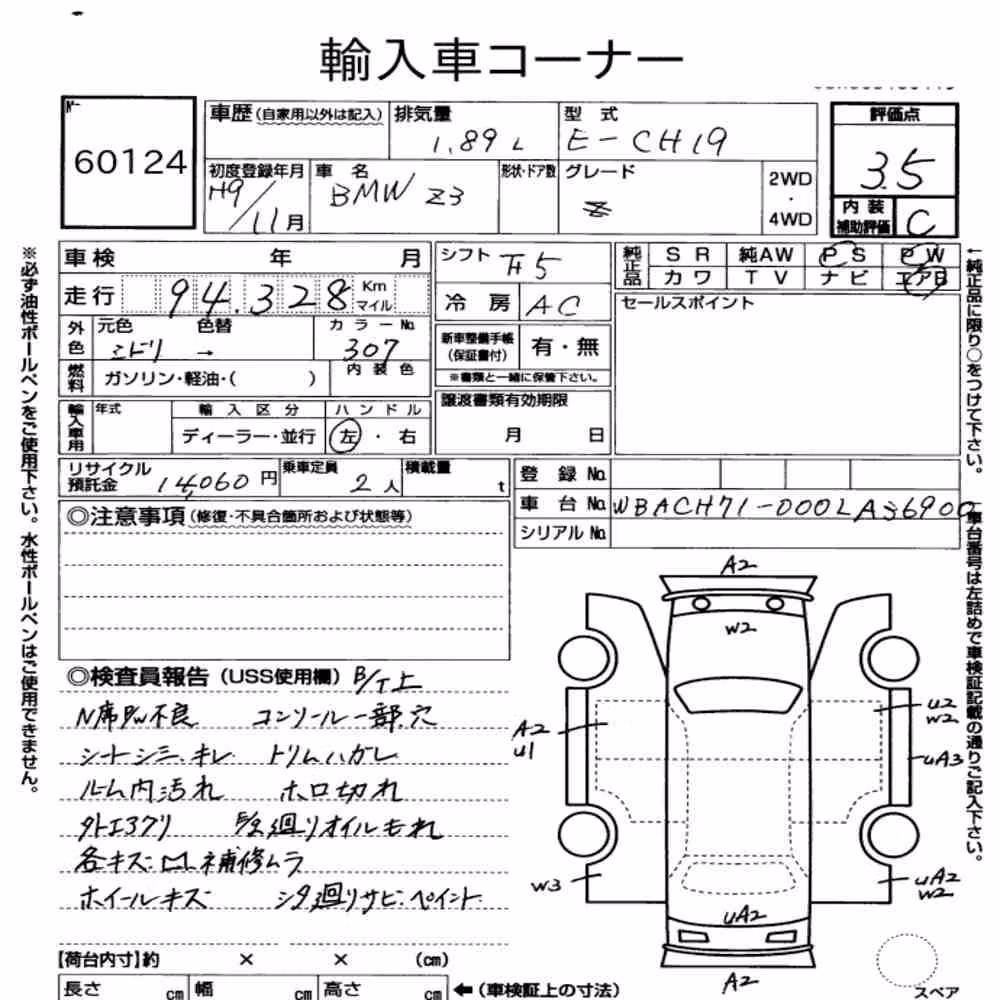 輸入車コーナー
60124
車歴(自家用以外は記入) 排気量 1.89 L 型式 E-CH19 評価点 3.5
初度登録年月 H9/11月 車名 BMW Z3 形状・ドア数 グレード 2WD・4WD 内装補助評価 C
車検 年 月 シフト 純正品 SR 純AW PS PW
走行 94.328 Km マイル 冷房 AC カワ TV ナビ エアB
外色 元色 ミドリ 色替 → カラーNo. 307
セールスポイント
新車整備手帳(保証書付) 有・無
※書類と一緒に保管下さい。
燃料 ガソリン・軽油・( ) 内装色
譲渡書類有効期限 月 日
輸入車用 年式 輸入区分 ディーラー・並行 ハンドル 左・右
リサイクル預託金 14,060円 乗車定員 2人 積載量 t
登録No.
車台No. WBACH71-000LA36900
シリアルNo.
◎注意事項(修復・不具合箇所および状態等)
◎検査員報告(USS使用欄) B/T上
N席PW不良 コンソール一部穴
シートシミ.キレ トリムハガレ
ルーム内汚れ ホロ切れ
廻りオイルもれ
各キズ. 補修ムラ
ホイールキズ 廻りサビ.ペイント
A2
W2
A2
U1
U2
W2
UA3
W3
UA2
W2
UA2
A2
スペア
【荷台内寸】約 × × (cm)
長さ cm 幅 cm 高さ cm ←(車検証上の寸法)
※必ず油性ボールペンをご使用下さい。水性ボールペンはご使用できません。
←純正品に限り○をつけて下さい。
車台番号は左詰めで車検証記載の通りご記入下さい。